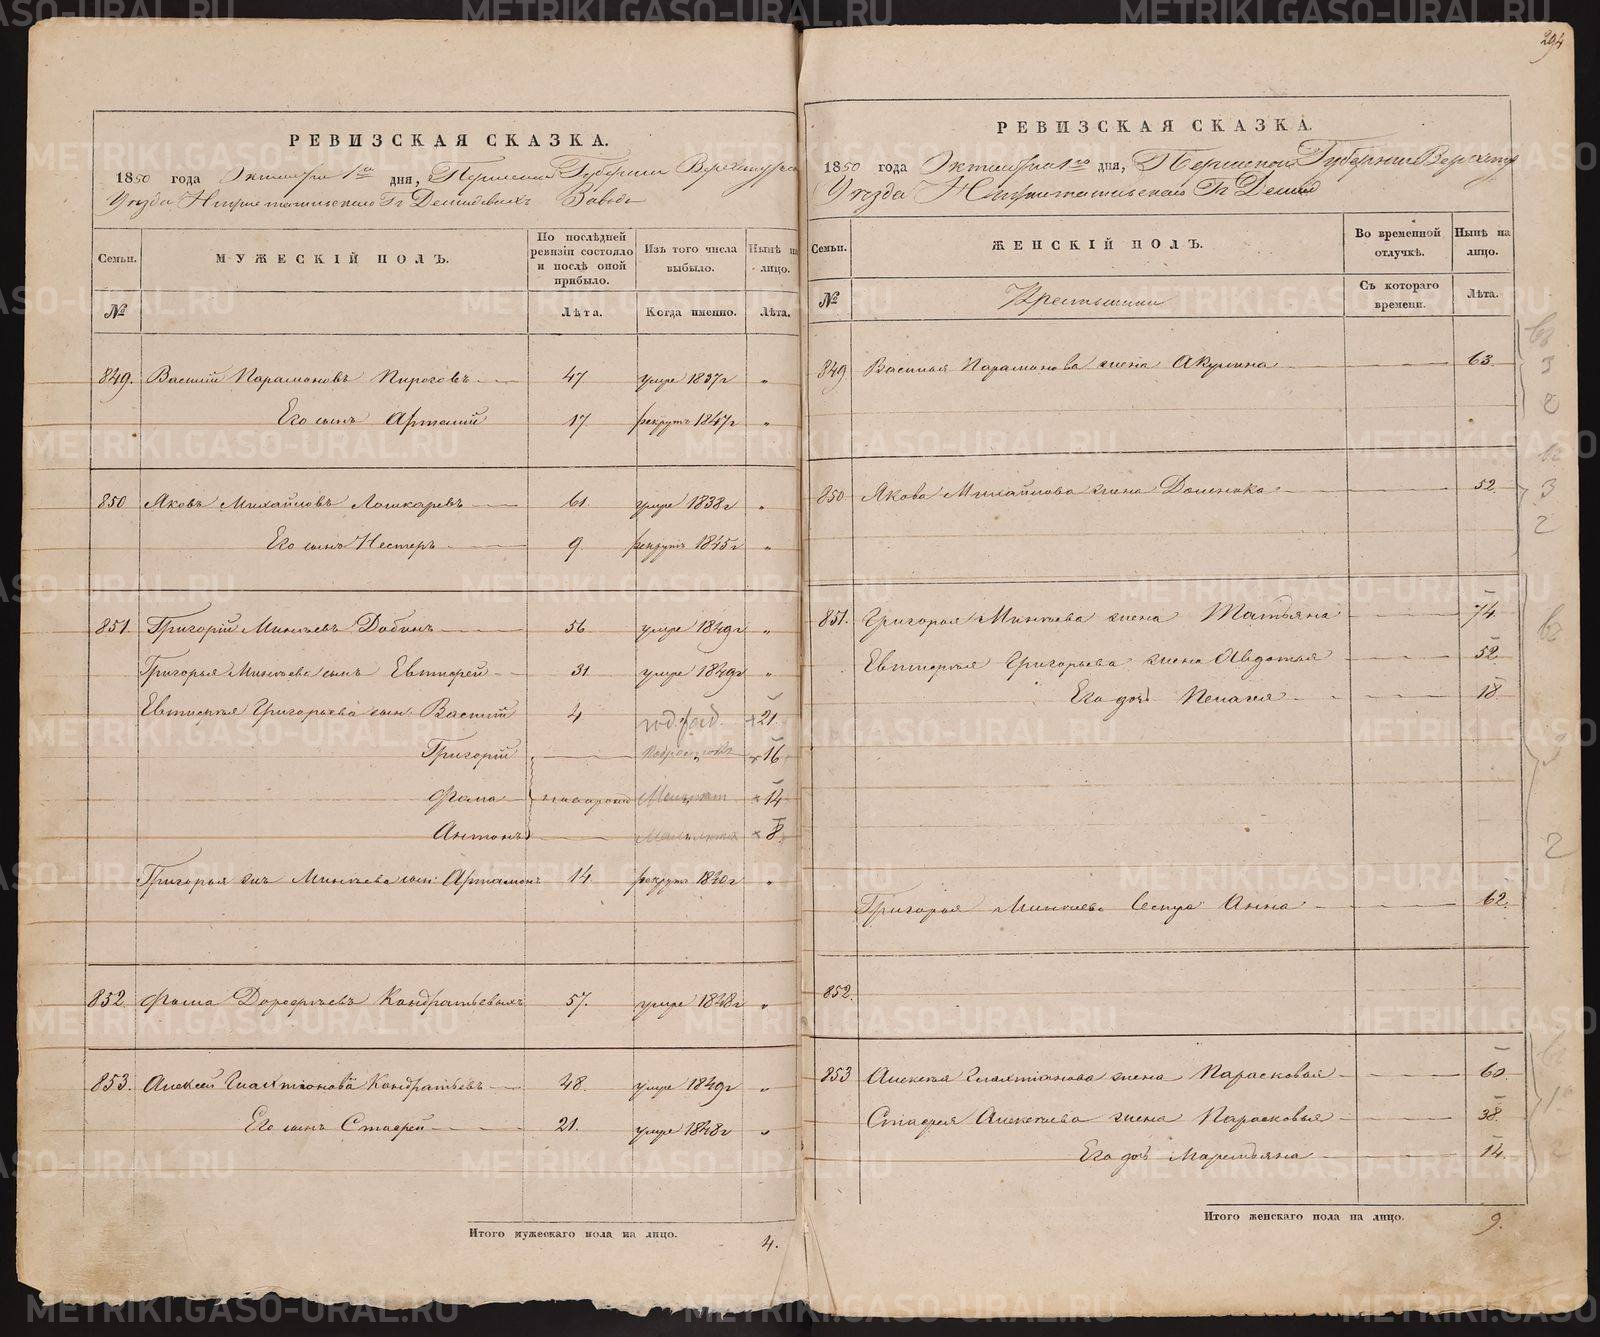 294
РЕВИЗСКАЯ СКАЗКА.
1850 года Октября 1го дня, Пермской Губернии Верхотурскаго
Уѣзда Н Гг Демидовыхъ Завода
Семьи. МУЖЕСКІЙ ПОЛЪ. По послѣдней ревизіи состояло и послѣ оной прибыло. Изъ того числа выбыло. Нынѣ на лицо.
№ Лѣта. Когда именно. Лѣта.
849. Василій Парамоновъ Пироговъ 47 умре 1837г "
Его сынъ Артемій 17 рекрутъ 1847г "
850 Яковъ Михайловъ Лошкаревъ 61. умре 1838г "
Его сынъ Нестеръ 9. рекрутъ 1845г "
851. Григорій Минѣевъ 56 умре 1849г "
Григорья Минѣева сынъ Евтифей 31 умре 1849г "
Евтифѣя Григорьева сын. Василій 4 +21.
Григорій Подростокъ +16
Фома новорожд +14
Антонъ Малолѣтка +8.
Григорья Минѣева сын: Артамонъ 14 рекрутъ 1840г "
852. Фома Дорофѣевъ Кондратьевыхъ 57. умре 1848г "
853. Алексей Глахтіоновъ Кондратьевъ 48. умре 1849г "
Его сынъ Стафей 21. умре 1848г "
Итого мужескаго пола на лицо. 4.
РЕВИЗСКАЯ СКАЗКА.
1850 года Октября 1го дня, Пермской Губерніи Верхоту
Уѣзда Н Гг Демид
Семьи. ЖЕНСКІЙ ПОЛЪ. Во временной отлучкѣ. Нынѣ на лицо.
№ Крестьянки Съ котораго времени. Лѣта.
849 Василья Парамонова жена Акулина 63.
850 Якова Михайлова жена Домника 52.
851. Григорья Минѣева жена Татьяна 74.
Евтифѣя Григорьева жена Авдотья 52.
Его дочь Пелагея 18.
Григорья Минѣева Сестра Анна 62.
852.
853 Алексѣя Глахтіонова жена Парасковья 60.
Стафея Алексѣева жена Парасковья 38.
Его дочь Маремьяна 14.
Итого женскаго пола на лицо. 9.
METRIKI.GASO-URAL.RU